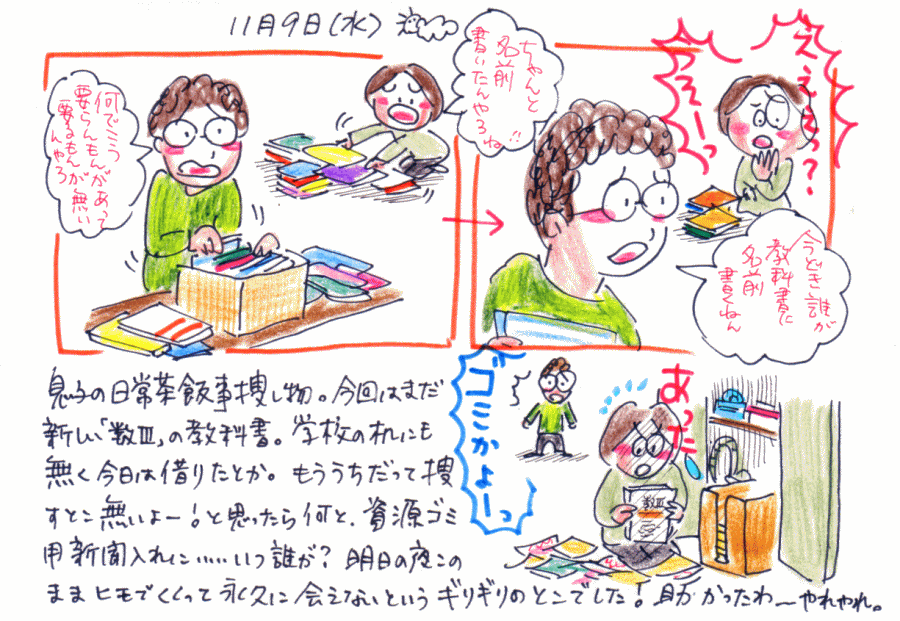 11月9日(水)
何でこう
要らんもんがあって
要るもんが無い
んやろ
ちゃんと
名前
書いたんやろね!!
えぇぇっ?
うっそーっ
今どき誰が
教科書に
名前
書くねん
ゴミかよーっ
あった
数Ⅲ
息子の日常茶飯事捜し物。今回はまだ
新しい「数Ⅲ」の教科書。学校の机にも
無く今日は借りたとか。もううちだって捜
すとこ無いよー!と思ったら何と、資源ゴミ
用新聞入れに……いつ誰が?明日の夜この
ままヒモでくくって永久に会えないというギリギリのとこでした!助かったわ〜やれやれ。